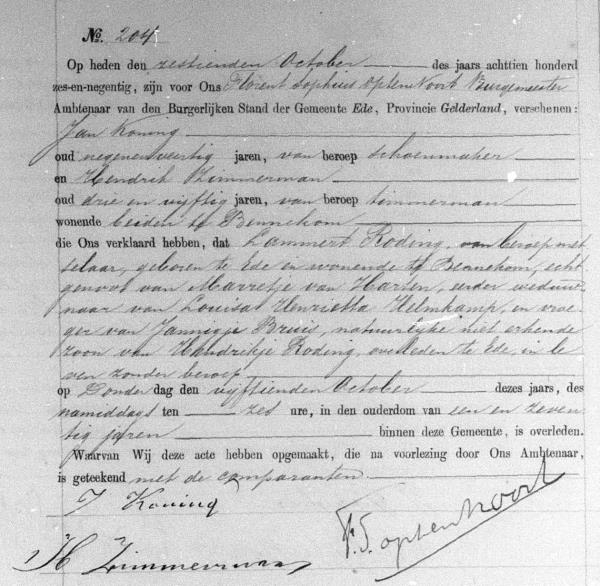 No. 204
Op heden den zestienden October des jaars achttien honderd
zes-en-negentig, zijn voor Ons Florent Sophius op ten Noort Burgemeester
Ambtenaar van den Burgerlijken Stand der Gemeente Ede, Provincie Gelderland, verschenen:
Jan Koning
oud negenenveertig jaren, van beroep schoenmaker
en Hendrik Zimmerman
oud drie en vijftig jaren, van beroep timmerman
wonende beiden te Bennekom
die Ons verklaard hebben, dat Lammert Roding, van beroep met
selaar, geboren te Ede en wonende te Bennekom, echt
genoot van Marretje van Harten, eerder weduw
naar van Louisa Henrietta Helmkamp, en vroe
ger van Jannigje Bruis, natuurlijke niet erkende
zoon van Hendrikje Roding, overleden te Ede, in le
ven zonder beroep
op Donderdag den vijftienden October dezes jaars, des
namiddags ten zes ure, in den ouderdom van een en zeven
tig jaren binnen deze Gemeente, is overleden.
Waarvan Wij deze acte hebben opgemaakt, die na voorlezing door Ons Ambtenaar,
is geteekend met de comparanten.
J Koning
F.S. op ten Noort
H Zimmerman